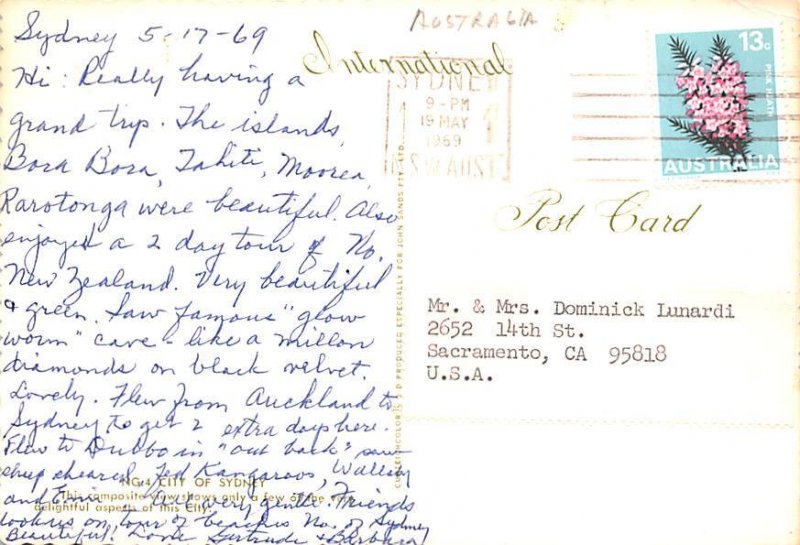 AUSTRALIA
Sydney 5-17-69
Hi: Really having a
grand trip. The islands,
Bora Bora, Tahiti, Moorea,
Rarotonga were beautiful. Also
enjoyed a 2 day tour of No.
New Zealand. Very beautiful
& green. Saw famous "glow
worm" cave - like a millon
diamonds on black velvet.
Lovely. Flew from Auckland to
Sydney to get 2 extra days here.
Flew to Dubbo in "out back" saw
sheep sheared, fed Kangaroos, Wallaby
and Emu - very gentle. Friends
took us on tour of beaches No. of Sydney
Beautiful. Love Gertrude & Barbara
NO.4 CITY OF SYDNEY
This composite view shows only a few of the very
delightful aspects of this City.
PRODUCED ESPECIALLY FOR JOHN SANDS PTY. LTD.
International
Post Card
SYDNEY
9 - PM
19 MAY
1969
N.S.W. AUST
1 1
13c
PINK HEATH
AUSTRALIA
Mr. & Mrs. Dominick Lunardi
2652 14th St.
Sacramento, CA 95818
U.S.A.